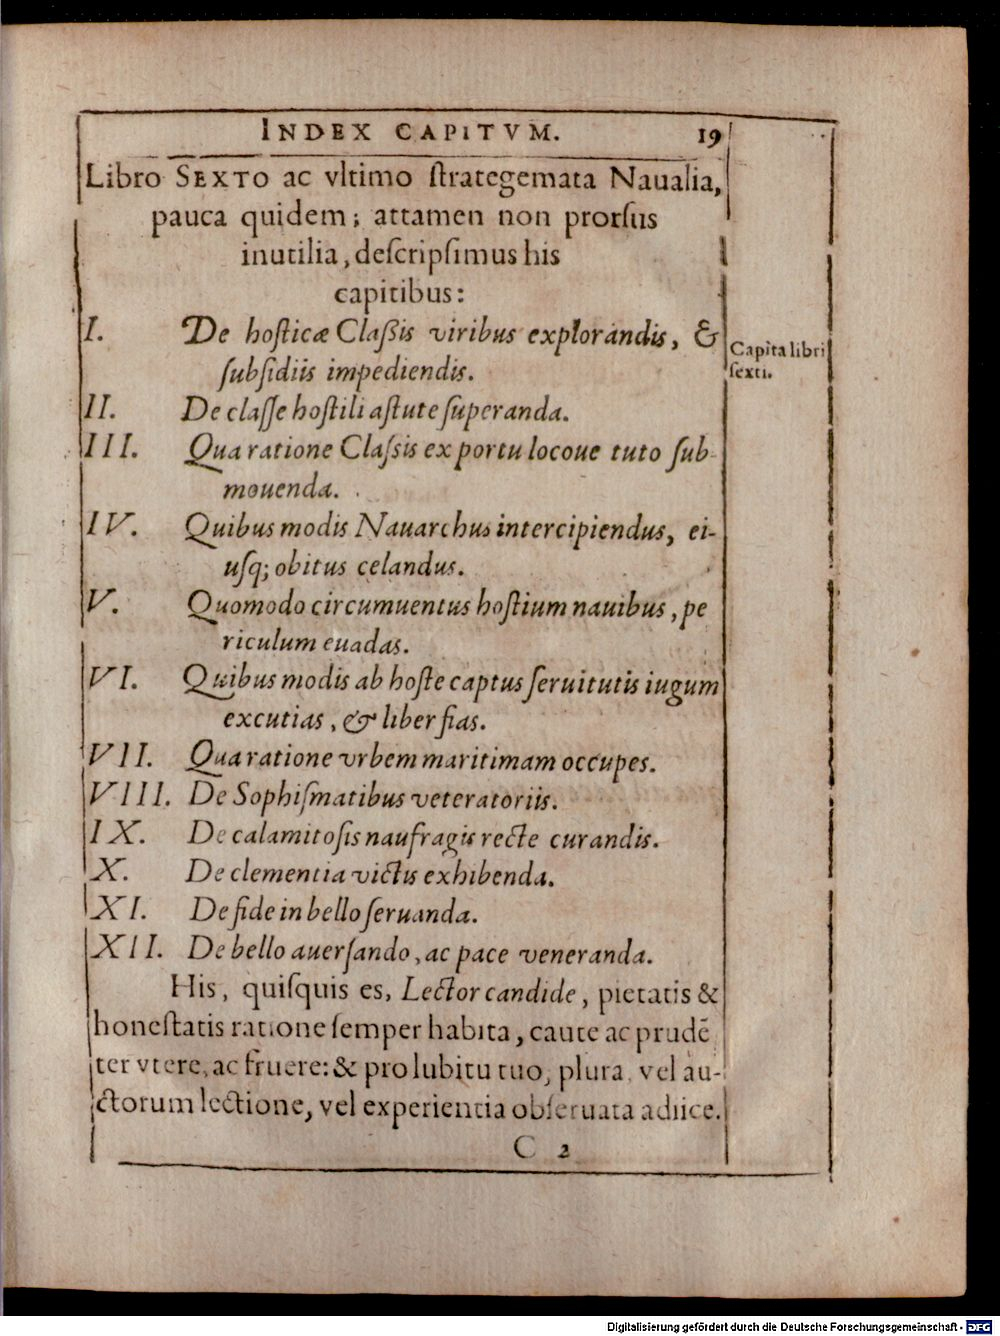 INDEX CAPITVM. 19
Libro SEXTO ac vltimo ſtrategemata Naualia,
pauca quidem; attamen non prorſus
inutilia, deſcripſimus his
capitibus:
I. De hoſticæ Claſſis viribus explorandis, &
ſubſidiis impediendis.
Capita libri
ſexti.
II. De claſſe hoſtili aſtute ſuperanda.
III. Qua ratione Claſsis ex portu locoue tuto ſub-
mouenda.
IV. Quibus modis Nauarchus intercipiendus, ei-
uſq; obitus celandus.
V. Quomodo circumuentus hoſtium nauibus, pe
riculum euadas.
VI. Quibus modis ab hoſte captus ſeruitutis iugum
excutias, & liber fias.
VII. Qua ratione vrbem maritimam occupes.
VIII. De Sophiſmatibus veteratoriis.
IX. De calamitoſis naufragis recte curandis.
X. De clementia victis exhibenda.
XI. De fide in bello ſeruanda.
XII. De bello auerſando, ac pace veneranda.
His, quiſquis es, Lector candide, pietatis &
honeſtatis ratione ſemper habita, caute ac prudē
ter vtere, ac fruere: & pro lubitu tuo, plura, vel au-
ctorum lectione, vel experientia obſeruata adiice.
C 2
Digitalisierung gefördert durch die Deutsche Forschungsgemeinschaft - DFG